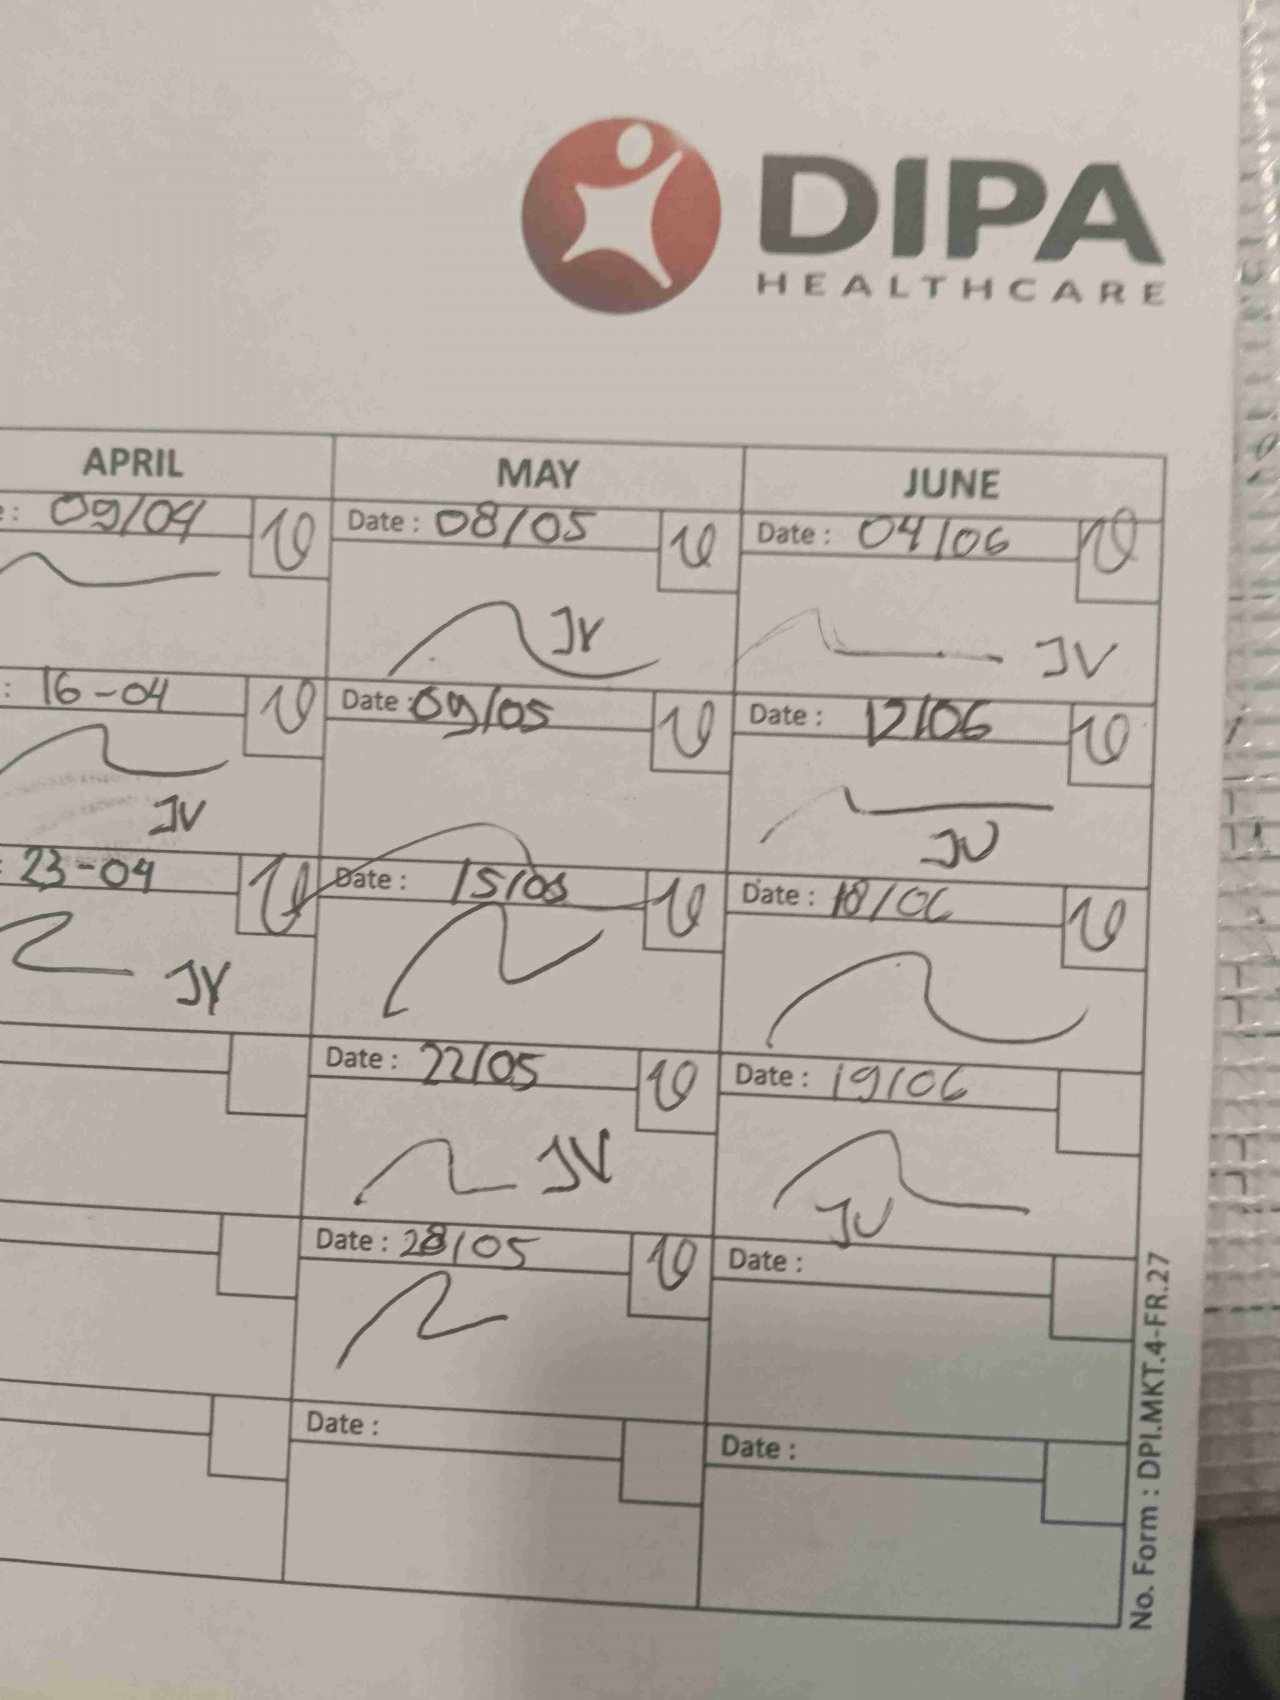 DIPA
HEALTHCARE
APRIL MAY JUNE
: 09/04 Date : 08/05 Date : 04/06
JV JV
: 16-04 Date : 09/05 Date : 12/06
JV JV
: 23-04 Date : 15/05 Date : 18/06
JV
Date : 22/05 Date : 19/06
JV JV
Date : 28/05 Date :
Date : Date :
No. Form : DPI.MKT.4-FR.27